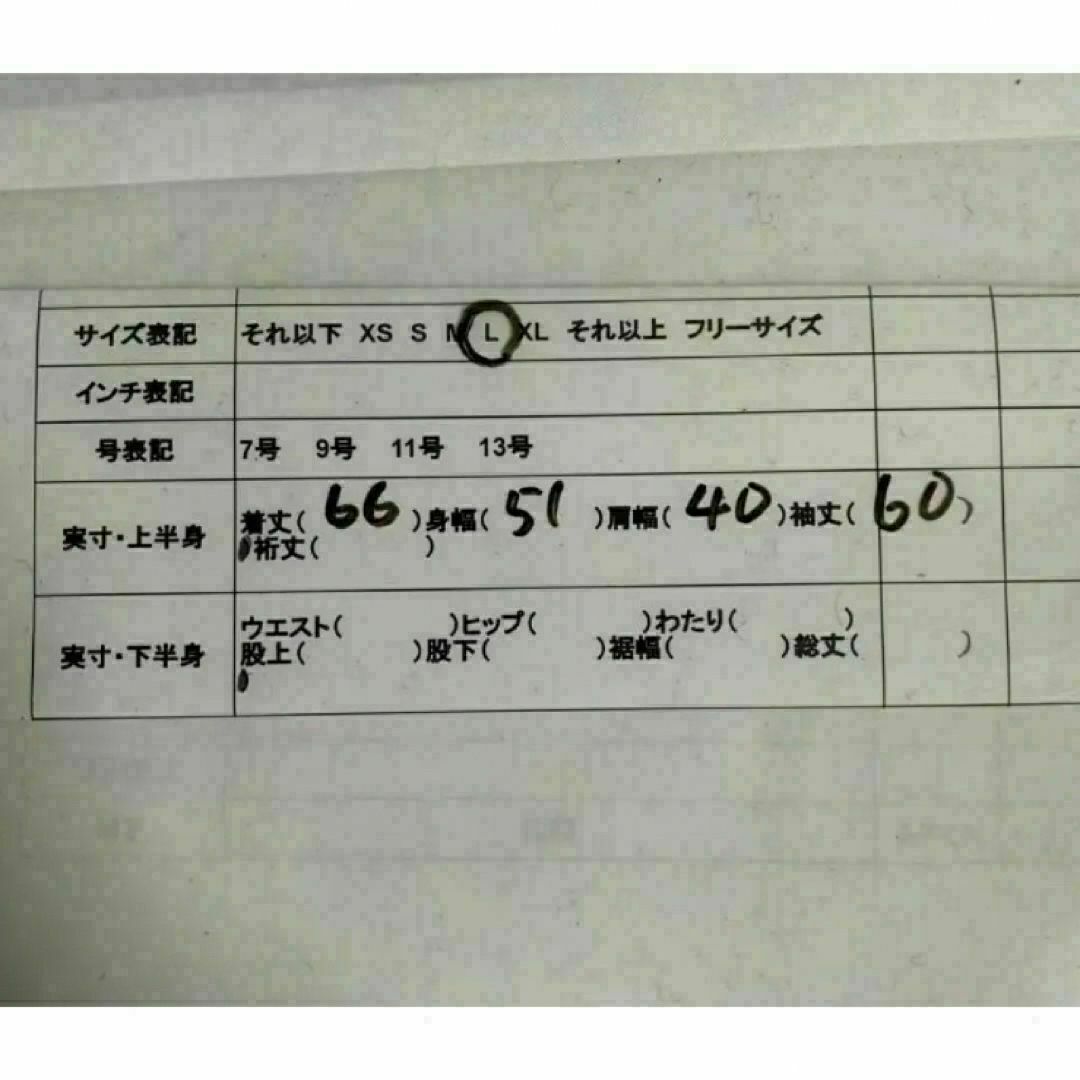 サイズ表記 それ以下 XS S M L XL それ以上 フリーサイズ
インチ表記
号表記 7号 9号 11号 13号
実寸・上半身 着丈( 66 )身幅( 51 )肩幅( 40 )袖丈( 60 )
裄丈( )
実寸・下半身 ウエスト( )ヒップ( )わたり( )
股上( )股下( )裾幅( )総丈( )